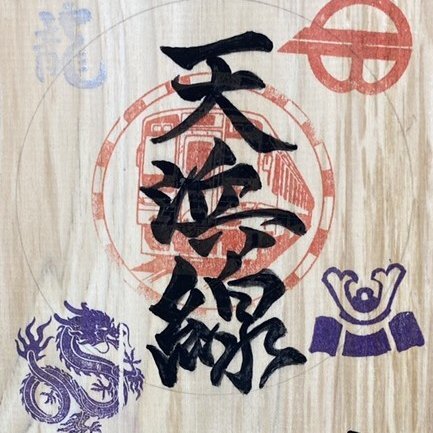 天浜線
龍